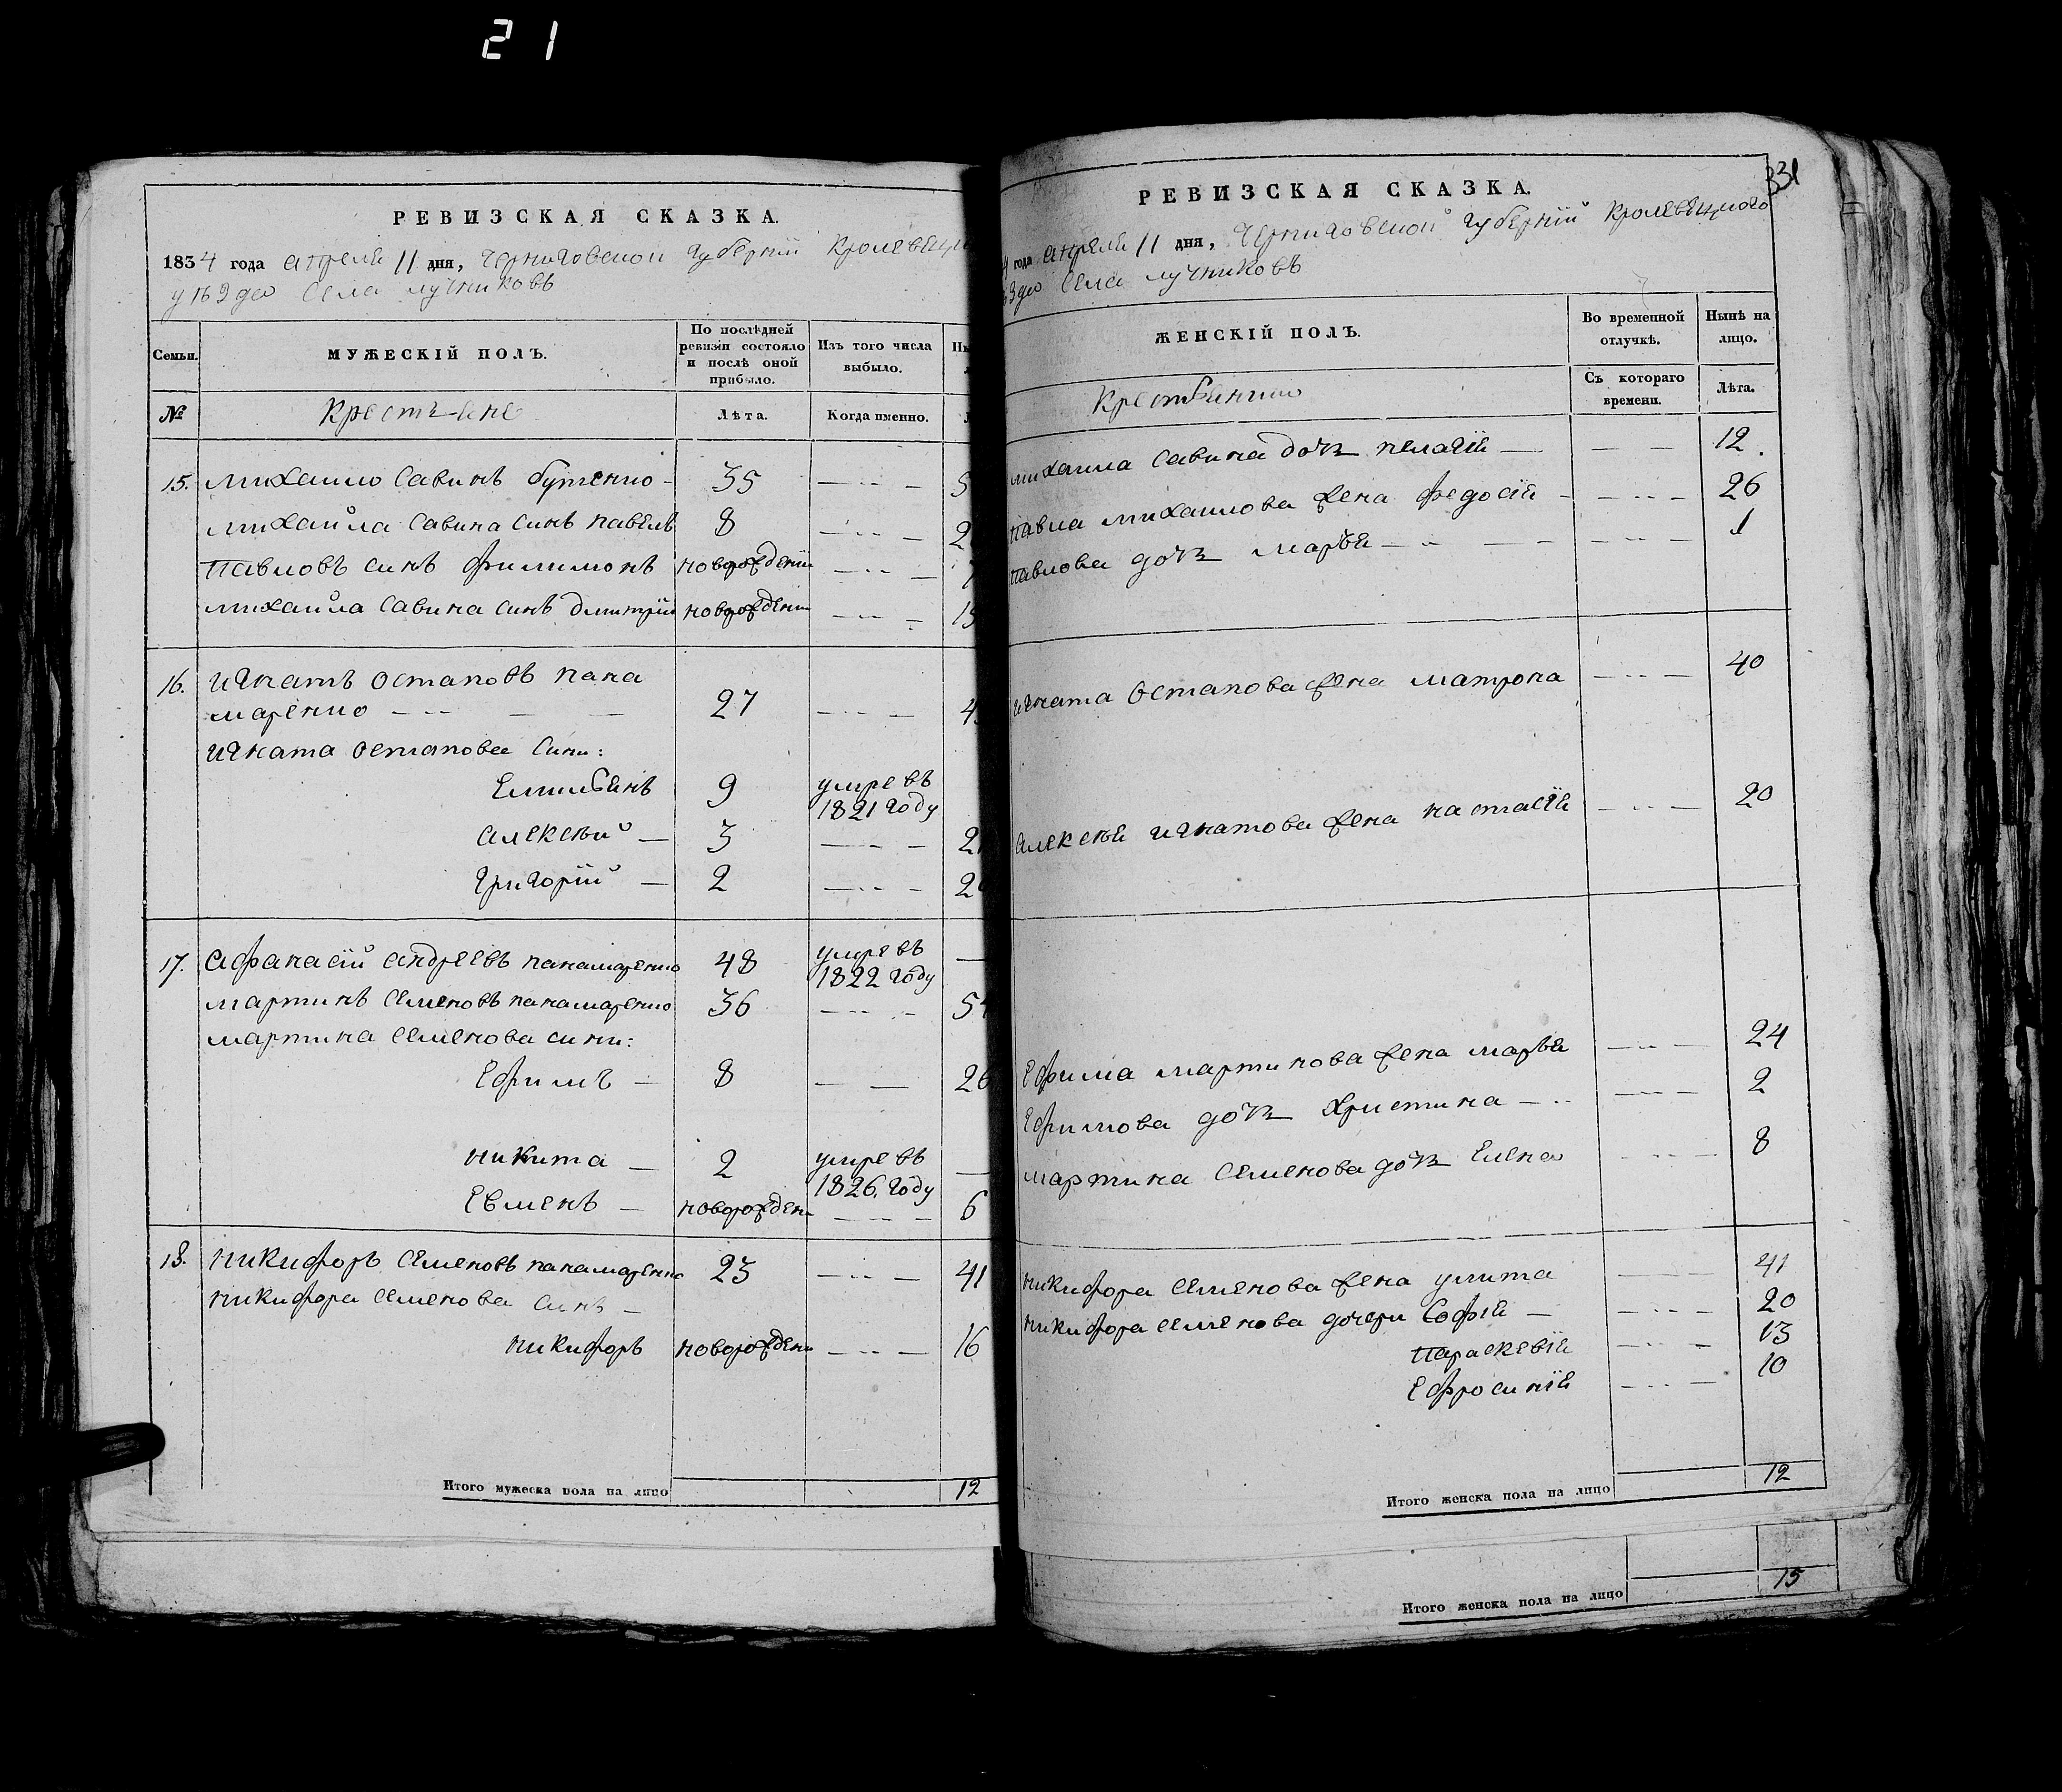 21
РЕВИЗСКАЯ СКАЗКА.
1834 года апреля 11 дня, Черниговской губерніи Кролевецк
уѣзда села лучниковъ
Семьи.
МУЖЕСКІЙ ПОЛЪ.
По послѣдней ревизіи состояло и послѣ оной прибыло.
Изъ того числа выбыло.
№
Крестьяне
Лѣта.
Когда именно.
15. михаило Савинъ бутенко - 35
михайла Савина Синъ павелъ 8
павловъ синъ филимонъ новорожденій 7
михайла Савина Синъ дмитрій новорожден
16. игнатъ остаповъ пана
маренко 27
игната остапова Сини:
Емилбянъ 9 умре въ
1821 году
алексѣй 3
григорій 2
17. афанасій андреевъ панамаренко 48 умре въ
1822 году
мартинъ семеновъ панамаренко 36
мартина семенова сини:
Ефимъ 8
никита 2 умре въ
1826. году
Евменъ новорожден 6
18. никифоръ семеновъ панамаренко 23 41
никифора семенова синъ
никифоръ новорожден 16
Итого мужеска пола на лицо 12
331
РЕВИЗСКАЯ СКАЗКА.
4 года апреля 11 дня, Черниговской губерніи Кролевецкого
села лучниковъ
ЖЕНСКІЙ ПОЛЪ.
Во временной отлучкѣ.
Нынѣ на лицо.
Крестьянки
Съ котораго времени.
Лѣта.
михаила Савина дочь пелагія 12.
павла михаилова жена федосія 26
павлова дочь марья 1
игната остапова жена матрона 40
алексѣя игнатова жена настасія 20
Ефима мартинова жена марья 24
Ефимова дочь Христина 2
мартина семенова дочь Елена 8
никифора семенова жена улита 41
никифора семенова дочери Софія 20
параскевія 13
Ефросинія 10
Итого женска пола на лицо 12
Итого женска пола на лицо 15